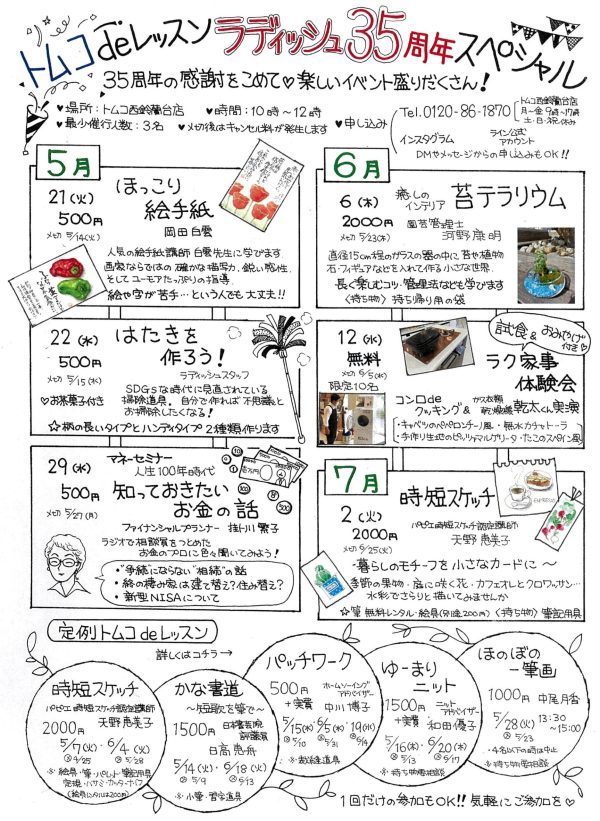 トムコdeレッスン ラディッシュ35周年スペシャル
35周年の感謝をこめて♡楽しいイベント盛りだくさん!
♥場所:トムコ西鈴蘭台店 ♥時間:10時〜12時
♥最少催行人数:3名 ♥〆切後はキャンセル料が発生します
♥申し込み
Tel.0120-86-1870
トムコ西鈴蘭台店
月〜金 9時〜17時
土・日・祝 休み
インスタグラム ライン公式アカウント
DMやメッセージからの申し込みもOK!!
5月
21(火)
500円
〆切 5/14(火)
ほっこり
絵手紙
岡田白雲
人気の絵手紙講師 白雲先生に学びます
画家ならではの確かな描写力、鋭い感性、
そしてユーモアたっぷりの指導。
絵や字が苦手…という人でも大丈夫!!
22(水)
500円
〆切 5/15(水)
♡お茶菓子付き
はたきを
作ろう!
ラディッシュスタッフ
SDGsな時代に見直されている
掃除道具。自分で作れば不思議と
お掃除したくなる!
☆柄の長いタイプとハンディタイプ 2種類作ります
29(水)
500円
〆切 5/27(月)
マネーセミナー
人生100年時代
知っておきたい
お金の話
ファイナンシャルプランナー 掛川繁子
ラジオで相談質をつとめた
お金のプロに色々聞いてみよう!
・"争続"にならない"相続"の話
・終の棲み家は建て替え?住み替え?
・新型NISAについて
6月
6(木)
2000円
〆切 5/23(木)
癒しのインテリア 苔テラリウム
園芸管理士
河野康明
直径15cm程のガラスの器の中に苔や植物
石・フィギュアなどを入れて作る小さな世界。
長く楽しむコツ・管理法なども学びます
〈持ち物〉持ち帰り用の袋
12(水)
無料
〆切 6/5(水)
限定10名
試食&おみやげ付き♡
ラク家事
体験会
コンロde
クッキング& ガス衣類乾燥機 乾太くん実演
・キャベツのペペロンチーノ風・無水カチャトーラ
・手作り生地のピッツァマルゲリータ・たこのスペイン風
7月
2(火)
2000円
〆切 6/25(火)
時短スケッチ
パピエ時短スケッチ認定講師
天野恵美子
-暮らしのモチーフを小さなカードに〜
季節の果物・庭に咲く花・カフェオレとクロワッサン…
水彩でさらりと描いてみませんか
☆筆 無料レンタル・絵具(別途200円)〈持ち物〉筆記用具
定例トムコdeレッスン
詳しくはコチラ→
時短スケッチ
パピエ時短スケッチ認定講師
天野恵美子
2000円
5/7(火)・6/4(火)
〆4/25 〆5/28
※絵具・筆・パレット・筆記用具
定規・ハサミ・カッターナイフ
(絵具レンタルは200円)
かな書道
〜短歌を筆で〜
1500円
日本書芸院
評議員
日高恵舟
5/14(火)・6/18(火)
〆5/9 〆6/13
※小筆・習字道具
パッチワーク
500円
+実費
ホームソーイング
アドバイザー
中川博子
5/15(水)・6/5(水)・19(水)
〆5/10 〆5/31 〆6/14
※裁縫道具
ゆーまり
ニット
1500円
+実費
ニット
アドバイザー
和田優子
5/16(木)・6/20(木)
〆5/13 〆6/17
※持ち物要相談
ほのぼの
一筆画
1000円 中尾月香
5/28(火) 13:30
〆5/23 〜15:00
・4名以下の時は中止
※持ち物要相談
1回だけの参加もOK!! 気軽にご参加を♡